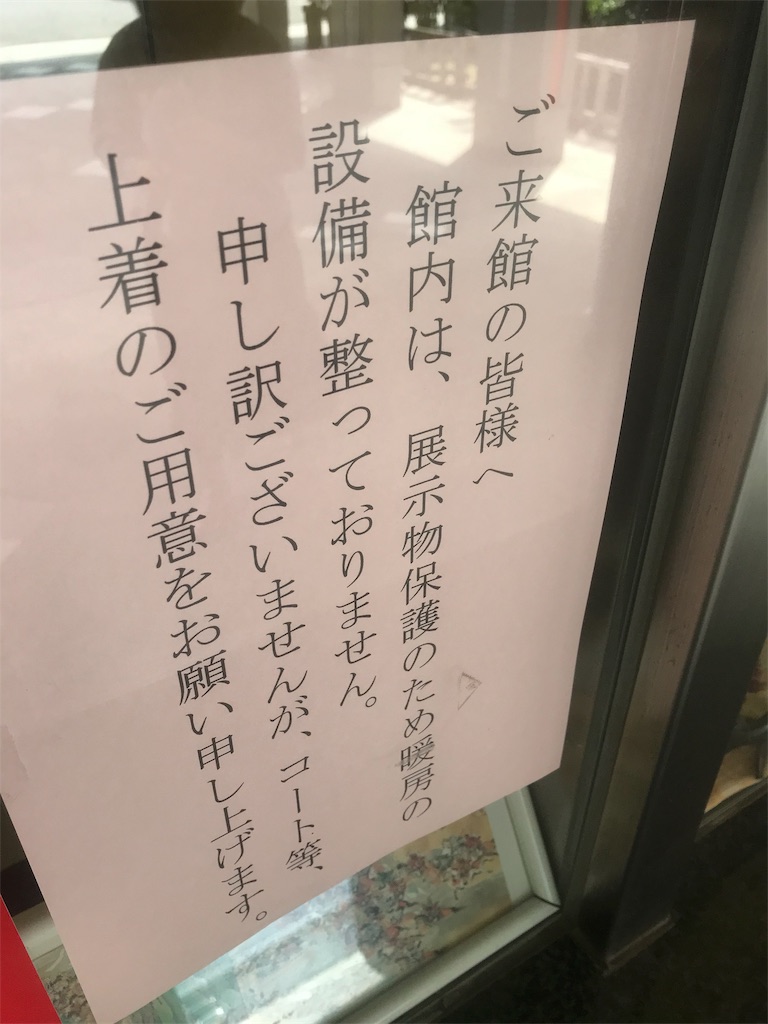 ご来館の皆様へ
館内は、展示物保護のため暖房の
設備が整っておりません。
申し訳ございませんが、コート等、
上着のご用意をお願い申し上げます。